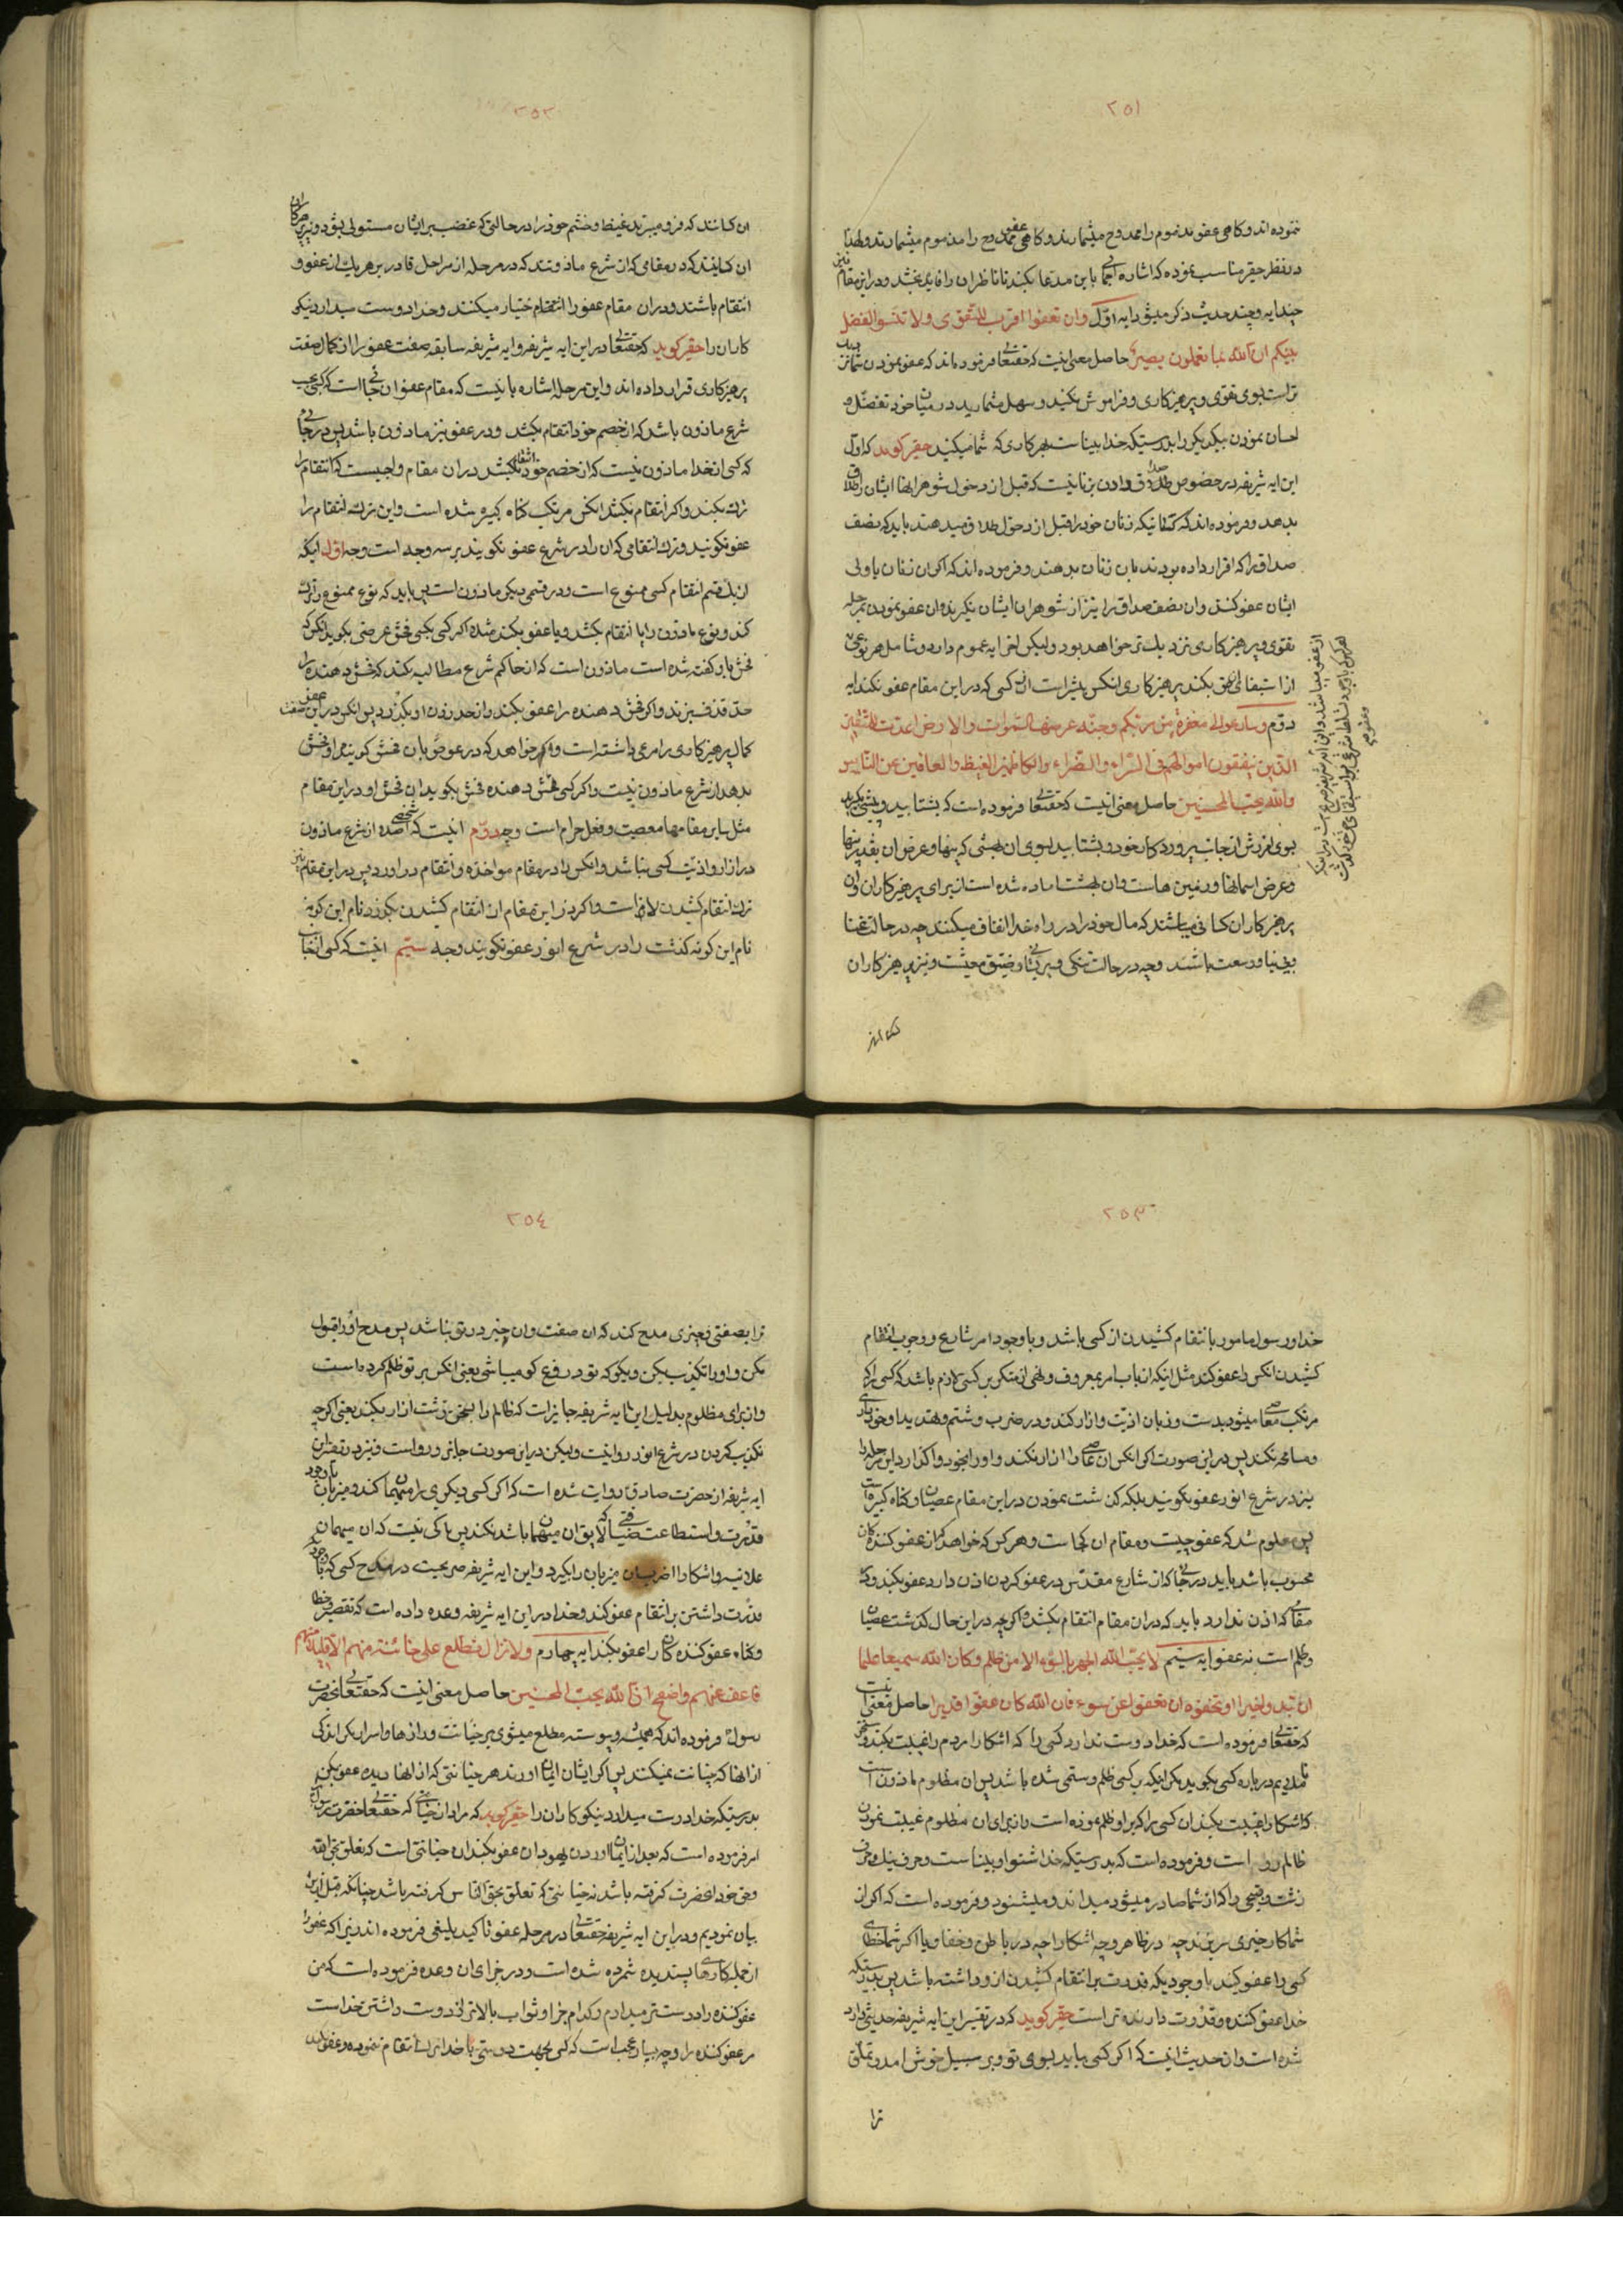 ٢٥١
نموده اند و کاهی عفو مذموم را ممدوح میشمارند و کاهی عفو ممدوح را مذموم میشمارند و لهذا
در نظر حقیر مناسب نموده که اشارۀ اجمالی باین مدعا بکند تا ناظران را فایده بخشد و در این مقام
چند ایه و چند حدیث ذکر میشود ایه اوّل وان تعفوا اقرب للتقوی ولا تنسوا الفضل
بینکم ان الله بما تعملون بصیر حاصل معنی اینست که حقتعالی فرموده اند که عفو نمودن شما
تر است بسوی تقوی و پرهیزکاری و فراموش مکنید و سهل مشمارید در میان خود تفضّل و
احسان نمودن بیکدیکر را بدرستیکه خدا بیناست بهر کاری که شما میکنید حقیر کوید که اوّل
این ایه شریفه در خصوص طلاق دادن زنانیست که قبل از دخول شوهر انها ایشان را طلاق
بدهد و فرموده اند که کسانیکه زنان خود را قبل از دخول طلاق میدهند باید که نصف
صداق را که اقرار داده بودند بان زنان بدهند و فرموده اند که اکر ان زنان یا ولی
ایشان عفو کنند وان نصف صداق را نیز از شوهران ایشان نکیرند وان عفو نمودن بمرحله
تقوی و پرهیزکاری نزدیک تر خواهد بود ولیکن اخر ایه عموم دارد و شامل هر نوعی
از استیفای حق بکند پرهیزکاری انکس بیشتر است از ان کسی که در این مقام عفو نکند ایه
دوّم وسارعوا الی مغفرة من ربّکم وجنّة عرضها السّموات والارض اعدّت للمتّقین
الّذین ینفقون اموالهم فی السّرّاء والضّراء والکاظمین الغیظ والعافین عن النّاس
والله یحبّ المحسنین حاصل معنی اینست که حقتعالی فرموده است که بشتابید و پیشی بکیرید
بسوی امرزش از جانب پروردکار خود و بشتابید بسوی ان بهشتی که پهنا و عرض ان بقدر پهنا
وعرض اسمانها و زمین هاست وان بهشت اماده شده است از برای پرهیزکاران وان
پرهیزکاران کسانی میباشند که مال خود را در راه خدا انفاق میکنند چه در حالت غنا
وبی نیاز و وسعت باشند و چه در حالت تنکی و پریشانی و ضیق معیشت و نیز پرهیزکاران
٢٥٢
ان کسانند که فرو میبرند غیظ و خشم خود را در حالتی که غضب بر ایشان مستولی بشود و نیز پرهیزکاران
ان کسانیند که در مقامی که از شرع ماذونند که در مرحله از مراحل قادر بر هر یک از عفو و
انتقام باشند و در ان مقام عفو را از انتقام اختیار میکنند و خدا دوست میدارد نیکو
کاران را حقیر کوید که حقتعالی در این ایه شریفه و ایه شریفه سابقه صفت عفو را از کمال صفت
پرهیزکاری قرار داده اند و این مرحله اشاره بانیست که مقام عفو ان جائی است که کسی بحسب
شرع ماذون باشد که از خصم خود انتقام بکشد و در عفو نیز ماذون باشد پس در جائی
که کسی از خدا ماذون نیست که از خصم خود انتقام نکشد در ان مقام واجبست که انتقام را
ترک نکند و اکر انتقام نکشد انکس مرتکب کناه کبیره شده است و این ترک انتقام را
عفو نکویند و ترک انتقامی که ان را در شرع عفو نکویند بر سه وجه است وجه اوّل اینکه
از یک قسم انتقام کسی ممنوع است و در قسمی دیکر ماذون است پس باید که نوع ممنوع را ترک
کند و نوع ماذون را یا انتقام بکشد و یا عفو بکند مثلا اکر کسی بکسی فحش عرضی بکوید انکس که
فحش باو کفته شده است ماذون است که از حاکم شرع مطالبه بکند که فحش دهنده را
حدّ قذف بزند و اکر فحش دهنده را عفو بکند و از حد زدن او بکذرد پس انکس در این عفو صفت
کمال پرهیزکاری را مرعی داشته است و اکر خواهد که در عوض بان فحش کوینده او فحش
بدهد از شرع ماذون نیست و اکر کسی بفحش دهنده فحش بکوید ان فحش او در این مقام
مثل سایر مقامها معصیت و فعل حرام است وجه دوّم اینست که شخصی از شرع ماذون
در ازار و اذیّت کسی نباشد و انکس را در مقام مواخذه و انتقام در اورد پس در این مقام نیز
ترک انتقام کشیدن لازم است و اکر در این مقام از انتقام کشیدن بکذرد نام این کونه
نام این کونه کذشت را در شرع انور عفو نکویند وجه سیّم اینست که کسی از جانب
٢٥٣
خدا و رسول مامور بانتقام کشیدن از کسی باشد و با وجود امر شارع و وجوب انتقام
کشیدن انکس را عفو کند مثل اینکه از باب امر بمعروف و نهی از منکر بر کسی لازم باشد که کسی را که
مرتکب معاصی میشود بدست و زبان اذیّت و ازار کند و در ضرب و شتم و تهدید او خودداری
و مسامحه نکند پس در این صورت اکر انکس ان عاصی را ازار نکند و او را بخود واکذارد این مرحله را
نیز در شرع انور عفو نکویند بلکه کذشت نمودن در این مقام عصیان و کناه کبیره است
پس معلوم شد که عفو چیست و مقام ان کجاست و هر کس که خواهد که از عفو کننده کان
محسوب باشد باید در جائی که از شارع مقدّس در عفو کردن اذن دارد عفو بکند و در
مقامی که اذن ندارد باید که در ان مقام انتقام بکشد و اکرچه در این حال کذشت عصیان
و ظلم است نه عفو ایه سیّم لا یحبّ الله الجهر بالسّوء الا من ظلم وکان الله سمیعا علیما
ان تبدوا خیرا او تخفوه او تعفوا عن سوء فان الله کان عفوّا قدیرا حاصل معنی اینست
که حقتعالی فرموده است که خدا دوست ندارد کسی را که اشکارا مردم را غیبت بکند و سخن
ناملایم در باره کسی بکوید مکر اینکه بر کسی ظلم و ستمی شده باشد پس ان مظلوم ماذون است
که اشکارا غیبت بکند ان کسی را که بر او ظلم نموده است و از برای ان مظلوم غیبت نمودن
ظالم روا است و فرموده است که بدرستیکه خدا شنوا و بیناست و حرف نیک و حرف
زشت و قبیحی را که از شما صادر میشود میداند و میشنود و فرموده است که اکر از
شما کار خیری سر بزند چه در ظاهر و چه اشکارا چه در باطن و خفا و یا اکر شما خطای
کسی را عفو کنید با وجودیکه قدرت بر انتقام کشیدن از او داشته باشید پس بدرستیکه
خدا عفو کننده و قدرت دارنده تر است حقیر کوید که در تفسیر این ایه شریفه حدیثی وارد
شده است وان حدیث اینست که اکر کسی بیاید بسوی تو و بر سبیل خوش امد و تملّق
ترا
٢٥٤
ترا بصفتی و چیزی مدح کند که ان صفت وان چیز در تو نباشد پس مدح او را قبول
مکن و او را تکذیب بکن و بکو که تو دروغ کو میباشی یعنی انکس بر تو ظلم کرده است
و از برای مظلوم بدلیل این ایه شریفه جایز است که ظالم را بسخن زشت ازار بکند یعنی اکرچه
تکذیب کردن در شرع انور روا نیست ولیکن در این صورت جایز و روا است و نیز در تفسیر این
ایه شریفه از حضرت صادق روایت شده است که اکر کسی دیکری را میهمان کند و میزبان با وجود
قدرت و استطاعت ضیافتی که لایق ان میهمان باشد نکند پس باکی نیست که ان میهمان
علانیه و اشکارا میزبان را بکیرد و این ایه شریفه صریحست در مدح کسی که با وجود
قدرت داشتن بر انتقام عفو کند و خدا در این ایه شریفه وعده داده است که تقصیر و خطا
و کناه عفو کننده کان را عفو بکند ایه چهارم ولا تزال تطلع علی خائنة منهم الا قلیلا منهم
فاعف عنهم واصفح ان الله یحبّ المحسنین حاصل معنی اینست که حقتعالی بحضرت
رسول فرموده اند که همیشه و پیوسته مطلع میشوی بر خیانت و رازها و اسرار مکر اندکی
از انها که خیانت نمیکنند پس اکر ایشان ایمان اورند هر خیانتی که از انها دیده عفو بکن
بدرستیکه خدا دوست میدارد نیکوکاران را حقیر کوید که مراد از خیانتی که حقتعالی حضرت رسول را
امر فرموده است که بعد از ایمان اوردن یهودان عفو بکند ان خیانتی است که تعلق بحق الله
وحق خود انحضرت کرفته باشد نه خیانتی که تعلق بحق الناس کرفته باشد چنانکه قبل از این
بیان نمودیم و در این ایه شریفه حقتعالی در مرحله عفو تاکید بلیغی فرموده اند زیرا که عفو را
از جمله کارهای پسندیده شمرده شده است و در جزای ان وعده فرموده است که من
عفو کننده را دوست میدارم و کدام جزا و ثواب بالاتر از دوست داشتن خداست
مر عفو کننده را و چه بسیار عجب است که کسی بجهت دوستی با خدا ترک انتقام ننموده و عفو نکند